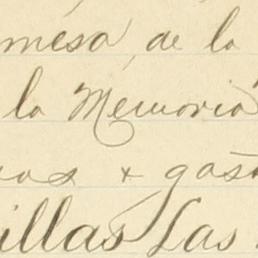 mesa, de la
la Memoria
cas + gas
illas Las